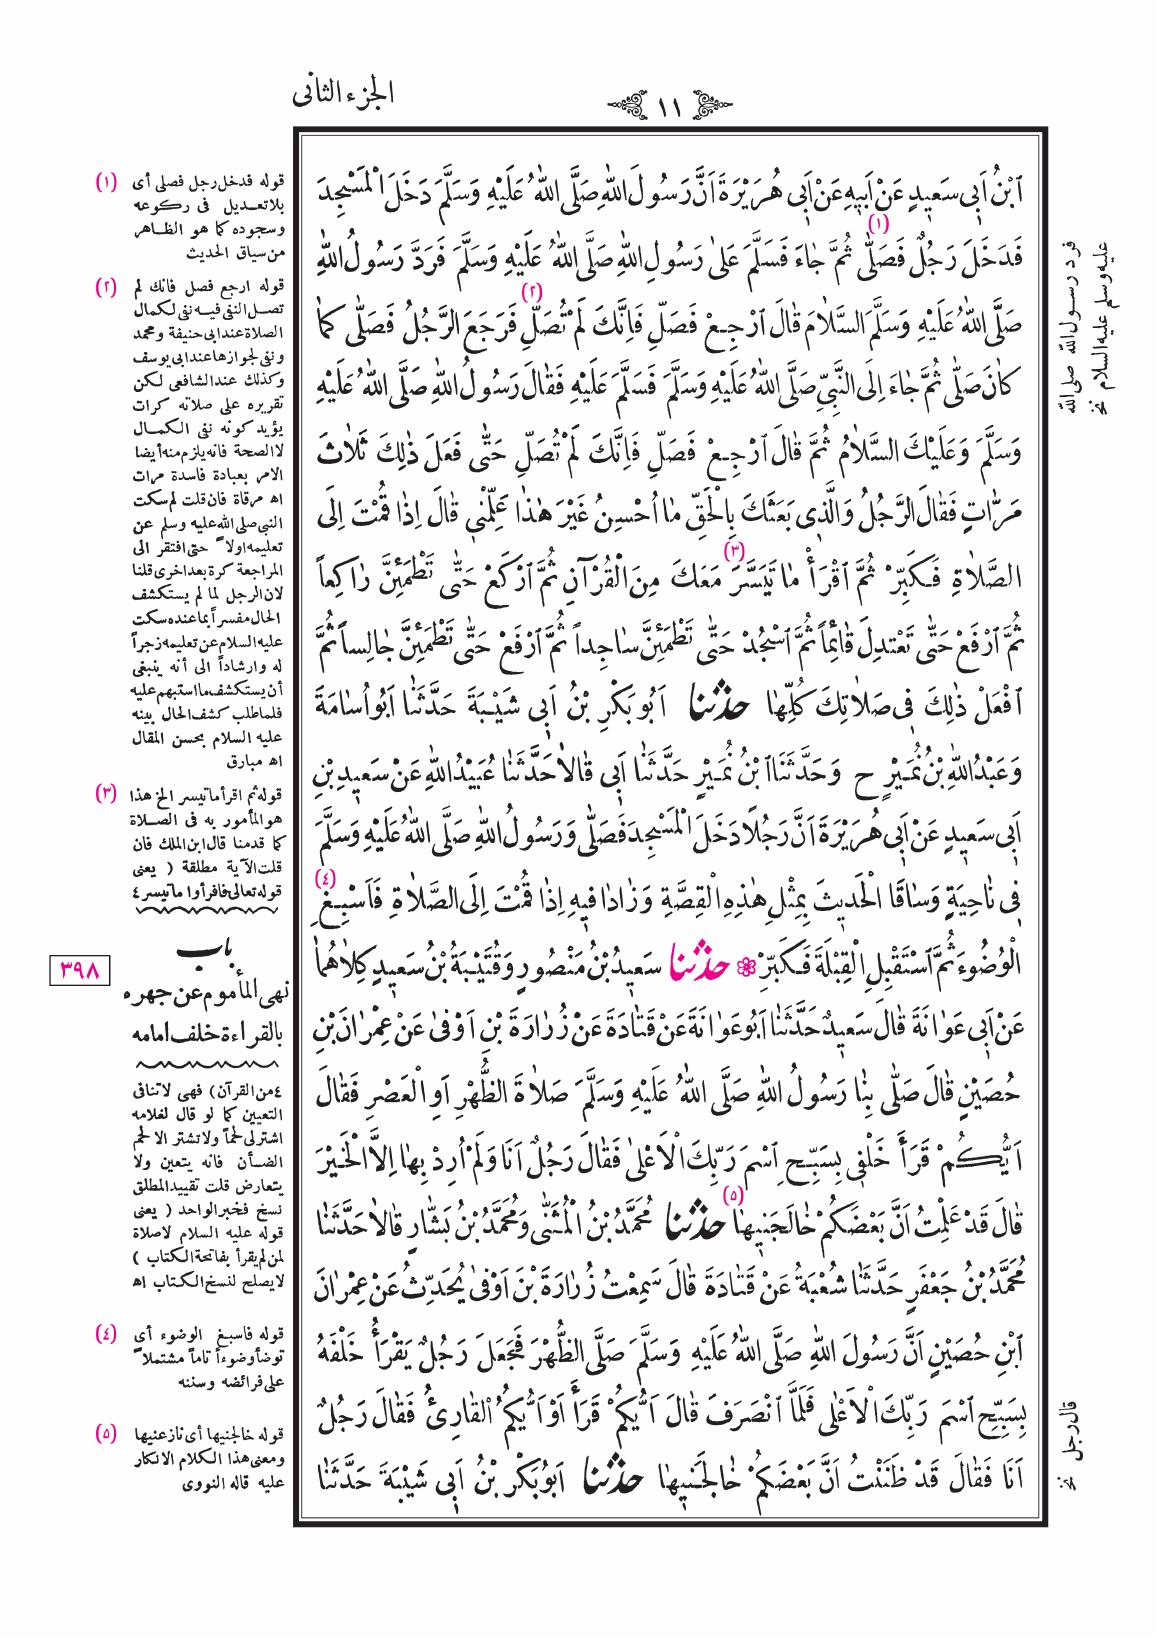 ١١
الجزء الثانى
اَبْنُ اَبِى سَعِيدٍ عَنْ اَبِيهِ عَنْ اَبِى هُرَيْرَةَ اَنَّ رَسُولَ اللهِ صَلَّى اللهُ عَلَيْهِ وَسَلَّمَ دَخَلَ الْمَسْجِدَ
فَدَخَلَ رَجُلٌ فَصَلَّى (١) ثُمَّ جَاءَ فَسَلَّمَ عَلىٰ رَسُولِ اللهِ صَلَّى اللهُ عَلَيْهِ وَسَلَّمَ فَرَدَّ رَسُولُ اللهِ
صَلَّى اللهُ عَلَيْهِ وَسَلَّمَ السَّلاٰمَ قٰالَ اَرْجِعْ فَصَلِّ فَاِنَّكَ لَمْ تُصَلِّ (٢) فَرَجَعَ الرَّجُلُ فَصَلّٰى كَمٰا
كٰانَ صَلّٰى ثُمَّ جٰاءَ اِلَى النَّبِىِّ صَلَّى اللهُ عَلَيْهِ وَسَلَّمَ فَسَلَّمَ عَلَيْهِ فَقٰالَ رَسُولُ اللهِ صَلَّى اللهُ عَلَيْهِ
وَسَلَّمَ وَعَلَيْكَ السَّلاٰمُ ثُمَّ قٰالَ اَرْجِعْ فَصَلِّ فَاِنَّكَ لَمْ تُصَلِّ حَتّٰى فَعَلَ ذٰلِكَ ثَلاٰثَ
مَرّٰاتٍ فَقٰالَ الرَّجُلُ وَالَّذِى بَعَثَكَ بِالْحَقِّ مٰا اُحْسِنُ غَيْرَ هٰذٰا عَلِّمْنِى قٰالَ اِذٰا قُمْتَ اِلَى
الصَّلاٰةِ فَكَبِّرْ ثُمَّ اَقْرَأْ مٰا تَيَسَّرَ (٣) مَعَكَ مِنَ الْقُرْآنِ ثُمَّ اَرْكَعْ حَتّٰى تَطْمَئِنَّ رٰاكِعاً
ثُمَّ اَرْفَعْ حَتّٰى تَعْتَدِلَ قٰائِماً ثُمَّ اَسْجُدْ حَتّٰى تَطْمَئِنَّ سٰاجِداً ثُمَّ اَرْفَعْ حَتّٰى تَطْمَئِنَّ جٰالِساً ثُمَّ
اَفْعَلْ ذٰلِكَ فِى صَلاٰتِكَ كُلِّهٰا حدثنا اَبُو بَكْرِ بْنُ اَبِى شَيْبَةَ حَدَّثَنٰا اَبُو اُسٰامَةَ
وَعَبْدُ اللهِ بْنُ نُمَيْرٍ ح وَحَدَّثَنَا ابْنُ نُمَيْرٍ حَدَّثَنٰا اَبِى قٰالاٰ حَدَّثَنٰا عُبَيْدُ اللهِ عَنْ سَعِيدِ بْنِ
اَبِى سَعِيدٍ عَنْ اَبِى هُرَيْرَةَ اَنَّ رَجُلاً دَخَلَ الْمَسْجِدَ فَصَلّٰى وَرَسُولُ اللهِ صَلَّى اللهُ عَلَيْهِ وَسَلَّمَ
فِى نٰاحِيَةٍ وَسٰاقَا الْحَدِيثَ بِمِثْلِ هٰذِهِ الْقِصَّةِ وَزٰادٰا فِيهِ اِذٰا قُمْتَ اِلَى الصَّلاٰةِ فَاَسْبِغِ (٤)
الْوُضُوءَ ثُمَّ اَسْتَقْبِلِ الْقِبْلَةَ فَكَبِّرْ حدثنا سَعِيدُ بْنُ مَنْصُورٍ وَقُتَيْبَةُ بْنُ سَعِيدٍ كِلاٰهُمٰا
عَنْ اَبِى عَوٰانَةَ قٰالَ سَعِيدٌ حَدَّثَنٰا اَبُو عَوٰانَةَ عَنْ قَتٰادَةَ عَنْ زُرٰارَةَ بْنِ اَوْفىٰ عَنْ عِمْرٰانَ بْنِ
حُصَيْنٍ قٰالَ صَلّٰى بِنٰا رَسُولُ اللهِ صَلَّى اللهُ عَلَيْهِ وَسَلَّمَ صَلاٰةَ الظُّهْرِ اَوِ الْعَصْرِ فَقٰالَ
اَيُّكُمْ قَرَأَ خَلْفِى بِسَبِّحِ اسْمَ رَبِّكَ الْاَعْلىٰ فَقٰالَ رَجُلٌ اَنَا وَلَمْ اُرِدْ بِهٰا اِلاَّ الْخَيْرَ
قٰالَ قَدْ عَلِمْتُ اَنَّ بَعْضَكُمْ خٰالَجَنِيهٰا (٥) حدثنا مُحَمَّدُ بْنُ الْمُثَنّٰى وَمُحَمَّدُ بْنُ بَشّٰارٍ قٰالاٰ حَدَّثَنٰا
مُحَمَّدُ بْنُ جَعْفَرٍ حَدَّثَنٰا شُعْبَةُ عَنْ قَتٰادَةَ قٰالَ سَمِعْتُ زُرٰارَةَ بْنَ اَوْفىٰ يُحَدِّثُ عَنْ عِمْرٰانَ
اَبْنِ حُصَيْنٍ اَنَّ رَسُولَ اللهِ صَلَّى اللهُ عَلَيْهِ وَسَلَّمَ صَلَّى الظُّهْرَ فَجَعَلَ رَجُلٌ يَقْرَأُ خَلْفَهُ
بِسَبِّحِ اَسْمَ رَبِّكَ الْاَعْلىٰ فَلَمَّا اَنْصَرَفَ قٰالَ اَيُّكُمْ قَرَأَ اَوْ اَيُّكُمُ الْقٰارِئُ فَقٰالَ رَجُلٌ
اَنَا فَقٰالَ قَدْ ظَنَنْتُ اَنَّ بَعْضَكُمْ خٰالَجَنِيهٰا حدثنا اَبُو بَكْرِ بْنُ اَبِى شَيْبَةَ حَدَّثَنٰا
(١) قوله فدخل رجل فصلى أى
بلا تعديل فى ركوعه
وسجوده كما هو الظاهر
من سياق الحديث
(٢) قوله ارجع فصل فانك لم
تصل النفى فيه نفى لكمال
الصلاة عند ابى حنيفة ومحمد
ونفى لجوازها عند ابى يوسف
وكذلك عند الشافعى لكن
تقريره على صلاته كرات
يؤيد كونه نفى الكمال
لا الصحة فانه يلزم منه أيضا
الامر بعبادة فاسدة مرات
اه مرقاة فان قلت لم سكت
النبى صلى الله عليه وسلم عن
تعليمه اولاً حتى افتقر الى
المراجعة كرة بعد اخرى قلنا
لان الرجل لما لم يستكشف
الحال مفسراً بما عنده سكت
عليه السلام عن تعليمه زجراً
له وارشاداً الى أنه ينبغى
أن يستكشف ما استبهم عليه
فلما طلب كشف الحال بينه
عليه السلام بحسن المقال
اه مبارق
(٣) قوله ثم اقرأ ما تيسر الخ هذا
هو المأمور به فى الصلاة
كما قدمنا قال ابن الملك فان
قلت الآية مطلقة ( يعنى
قوله تعالى فاقرأوا ما تيسر ٤
باب
نهى المأموم عن جهره
بالقراءة خلف امامه
٣٩٨
٤ من القرآن ) فهى لا تنافى
التعيين كما لو قال لغلامه
اشتر لى لحماً ولا تشتر الا لحم
الضأن فانه يتعين ولا
يتعارض قلت تقييد المطلق
نسخ فخبر الواحد ( يعنى
قوله عليه السلام لا صلاة
لمن لم يقرأ بفاتحة الكتاب )
لا يصلح لنسخ الكتاب اه
(٤) قوله فاسبغ الوضوء أى
توضأ وضوءاً تاماً مشتملاً
على فرائضه وسننه
(٥) قوله خالجنيها أى نازعنيها
ومعنى هذا الكلام الانكار
عليه قاله النووى
فرد رسول الله صلى الله
عليه وسلم عليه السلام نخ
قال رجل نخ